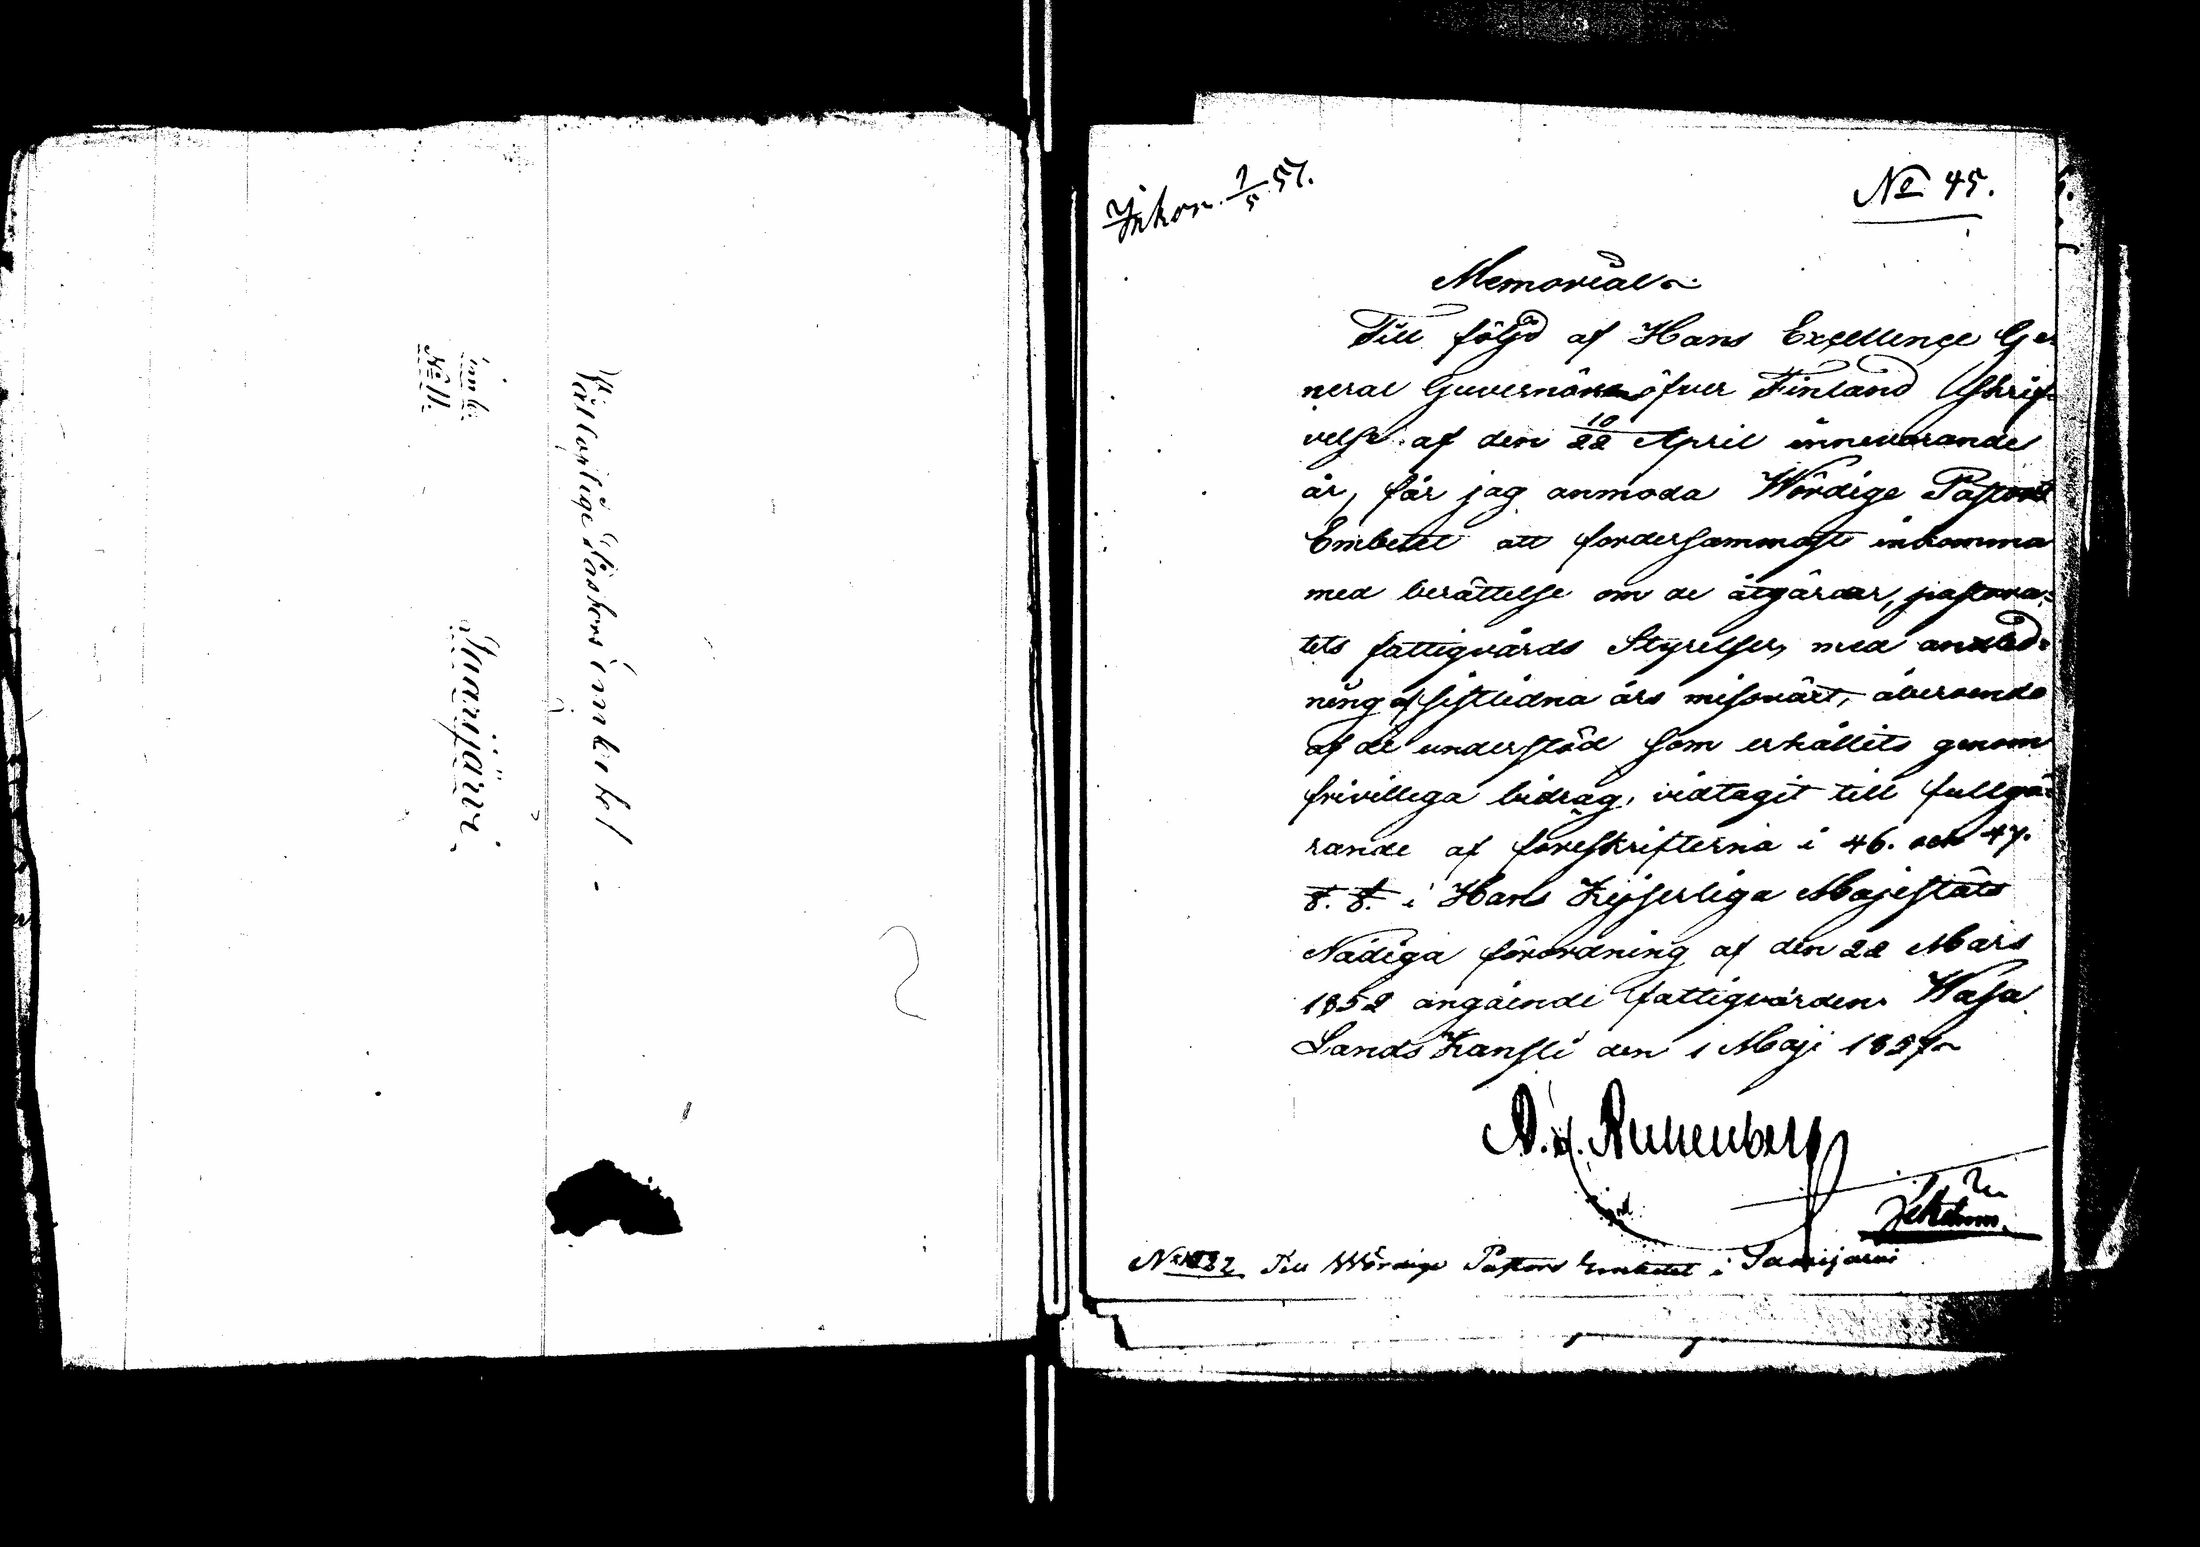 Välloflige Pastors embetet
i
Saarijärvi
emb.
No 11.
Inkom. 7/5 57.
No 45.
Memorial
Till följd af Hans Excellence Ge-
neral Guvernören öfver Finland Skrif-
velse af den 10/22 April innevarande
år, får jag anmoda Wördige Pastors
Embetet att fordersammast inkomma
med berättelse om de åtgärder, pastora-
tets fattigvårds Styrelser, med anled-
ning af sistlidna års missväxt, oberoende
af de understöd som erhållits genom
frivilliga bidrag, vidtagit till fullgö-
rande af föreskrifterna i 46. och 47.
§. §. i Hans Kejserliga Majestäts
Nådiga förordning af den 22 Mars
1852 angående fattigvården. Wasa
Lands Kansli den 1 Maji 1857
No 1032 Till Wördige Pastors Embetet i Saarijärvi